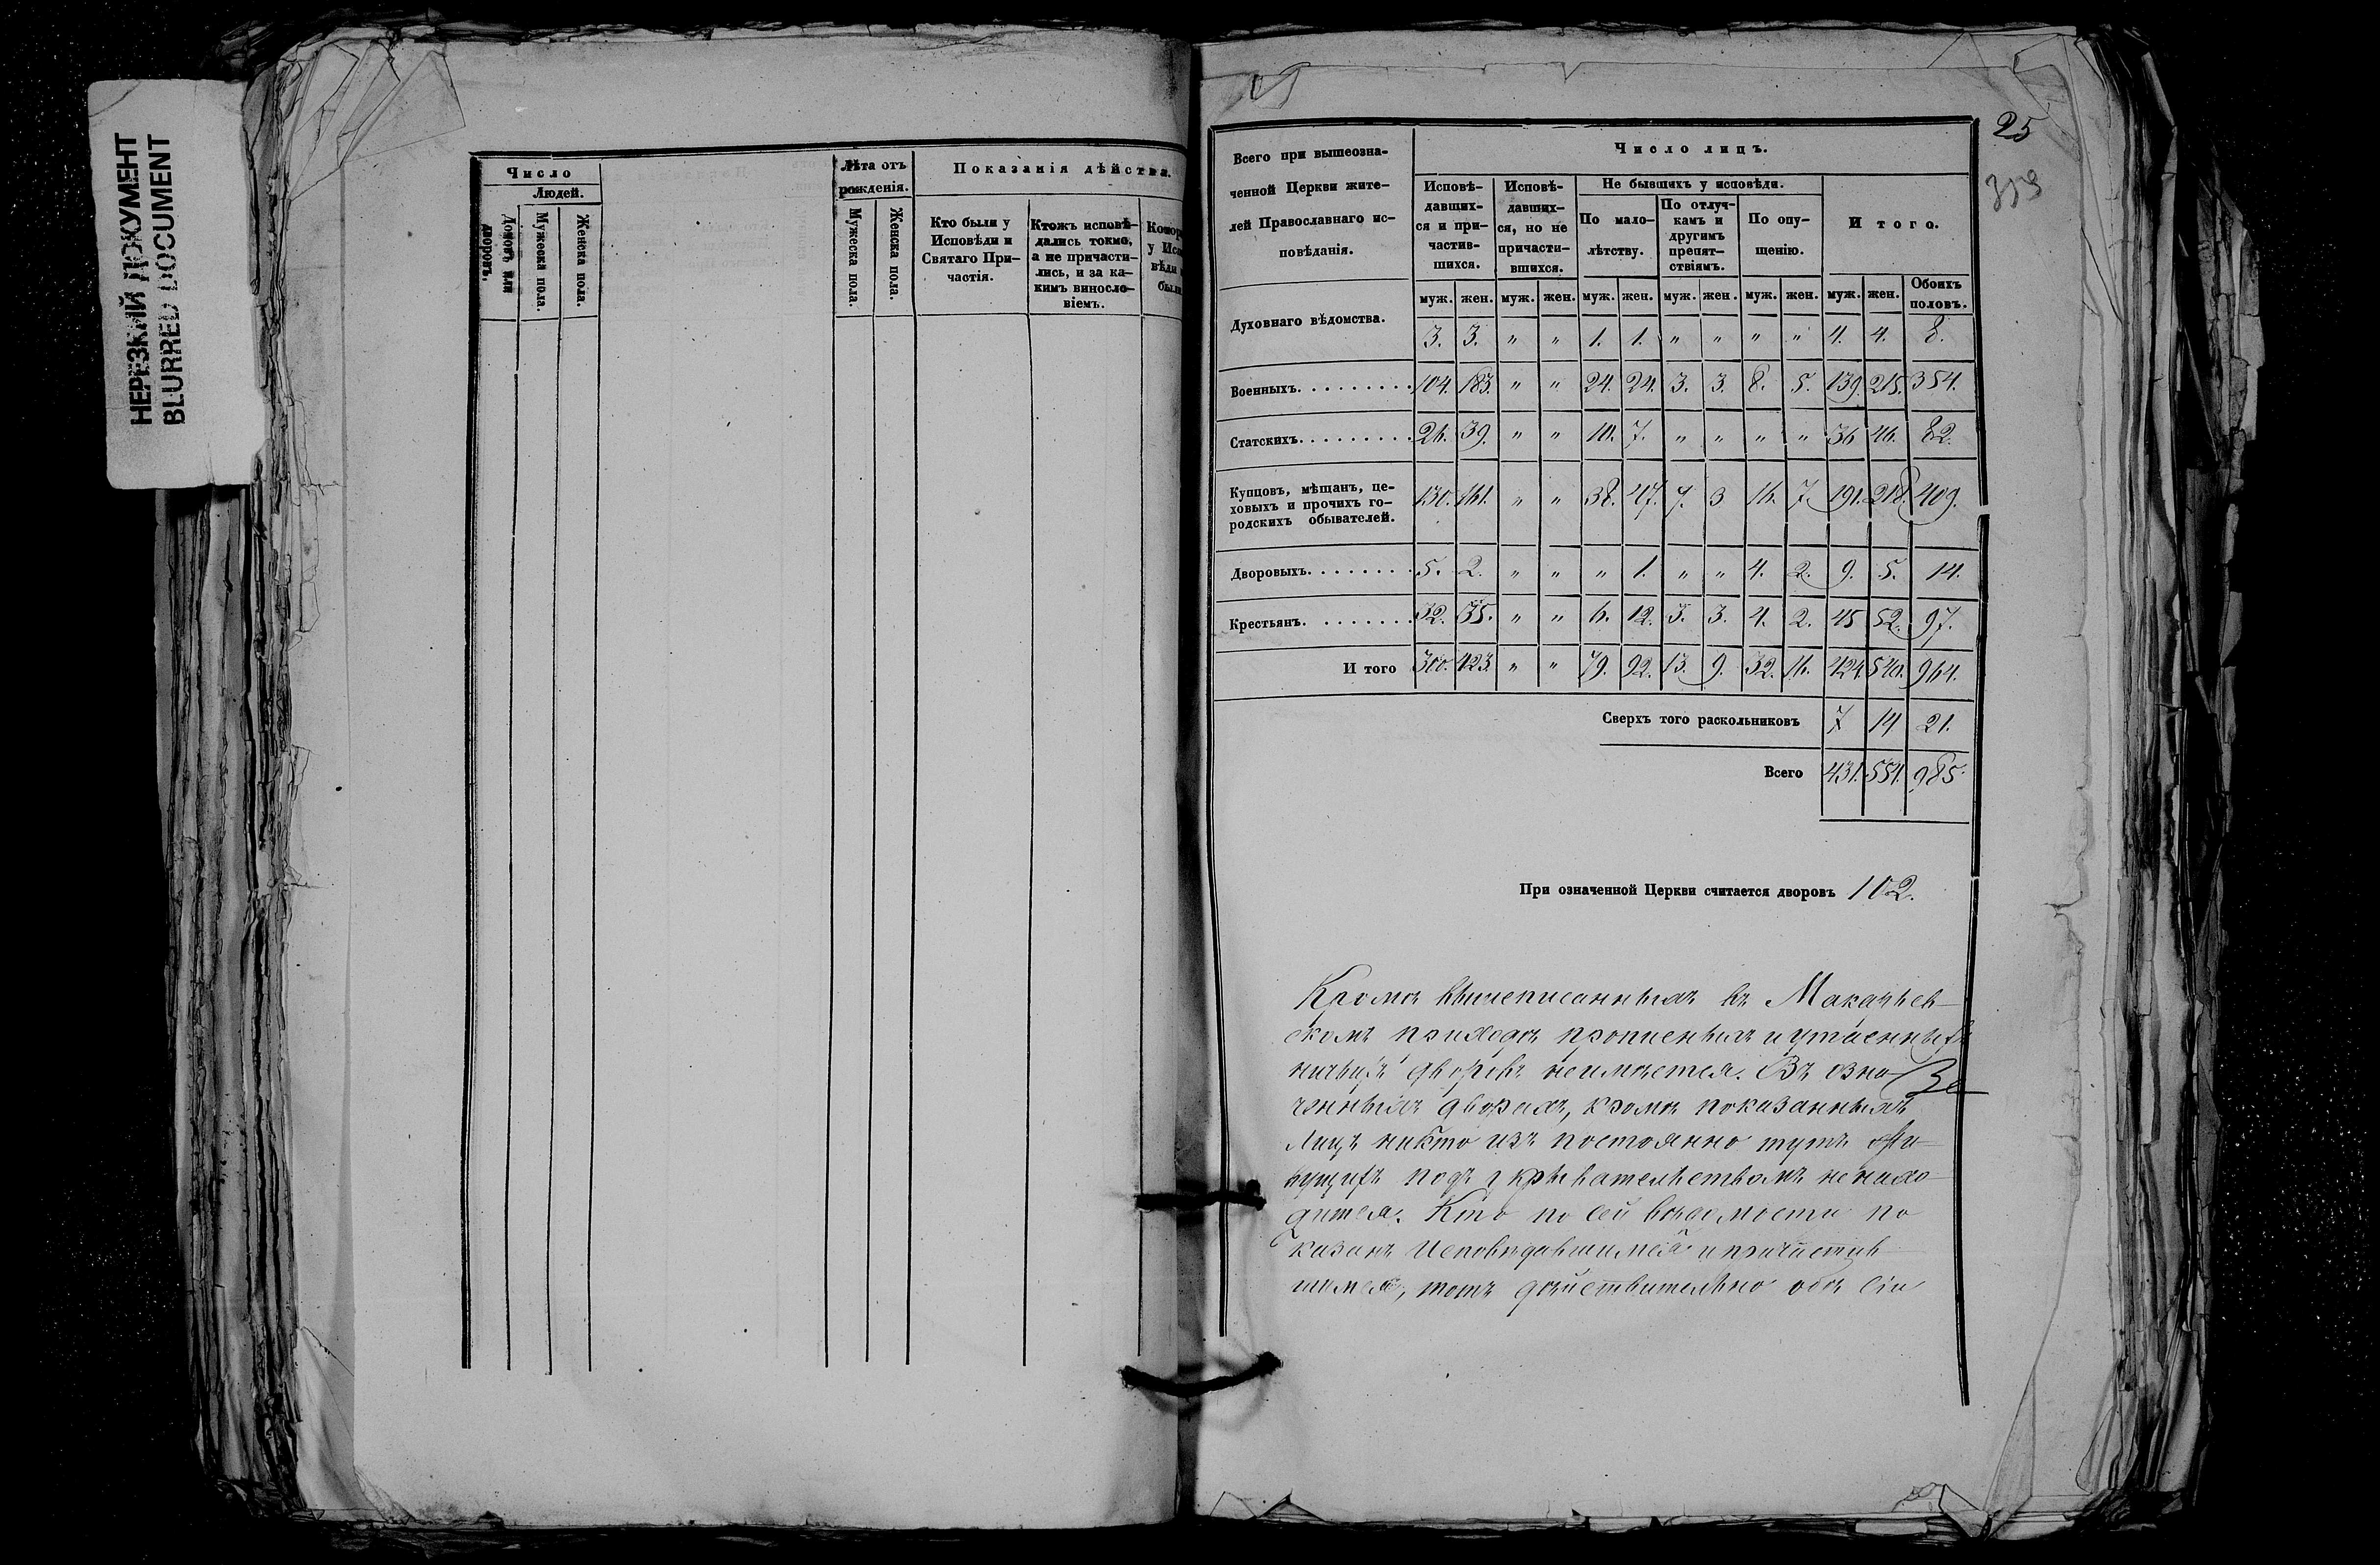 НЕРЕЗКИЙ ДОКУМЕНТ
BLURRED DOCUMENT
Число
Людей.
Домовъ или дворовъ.
Мужеска пола.
Женска пола.
Лѣта отъ рожденія.
Мужеска пола.
Женска пола.
Показанія дѣйства.
Кто были у
Исповѣди и
Святаго При-
частія.
Ктожъ исповѣ-
дались токмо,
а не причасти-
лись, и за ка-
кимъ виносло-
віемъ.
у Исп
вѣди
были
25
Всего при вышеозна-
ченной Церкви жите-
лей Православнаго ис-
повѣданія.
Число лицъ.
Исповѣ-
давших-
ся и при-
частив-
шихся.
Исповѣ-
давших-
ся, но не
причасти-
вшихся.
Не бывшихъ у исповѣди.
По мало-
лѣтству.
По отлуч-
камъ и
другимъ
препят-
ствіямъ.
По опу-
щенію.
И того.
муж. жен. муж. жен. муж. жен. муж. жен. муж. жен. муж. жен. Обоихъ половъ.
Духовнаго вѣдомства. 3. 3. " " 1. 1. " " " " 4. 4. 8.
Военныхъ. 104. 183. " " 24. 24. 3. 3. 8. 5. 139. 215. 354.
Статскихъ. 26. 39. " " 10. 7. " " " " 36 46. 82.
Купцовъ, мѣщанъ, це-
ховыхъ и прочихъ го-
родскихъ обывателей. 130. 161. " " 38. 47. 7. 3 16. 7. 191. 218. 409.
Дворовыхъ. 5. 2. " " " 1. " " 4. 2. 9. 5. 14.
Крестьянъ. 32. 35. " " 6. 12. 3. 3. 4. 2. 45 52. 97.
И того 300. 423. " " 79. 92. 13. 9. 32. 16. 424. 540. 964.
Сверхъ того раскольниковъ 7 14 21.
Всего 431. 554. 985.
При означенной Церкви считается дворовъ 102.
Кромѣ вышеписанныхъ въ Макарьев-
скомъ приходѣ прописныхъ и утаенныхъ
ничьихъ дворовъ неимѣется. Въ озна-
ченныхъ дворахъ, кромѣ показанныхъ
лицъ никто изъ постоянно тутъ жи-
вущихъ подъ укрывательствомъ ненахо-
дится. Кто по сей вѣдомости по
казанъ Исповѣдавшимся и причастив
шимся, тотъ дѣйствительно обѣ сіи